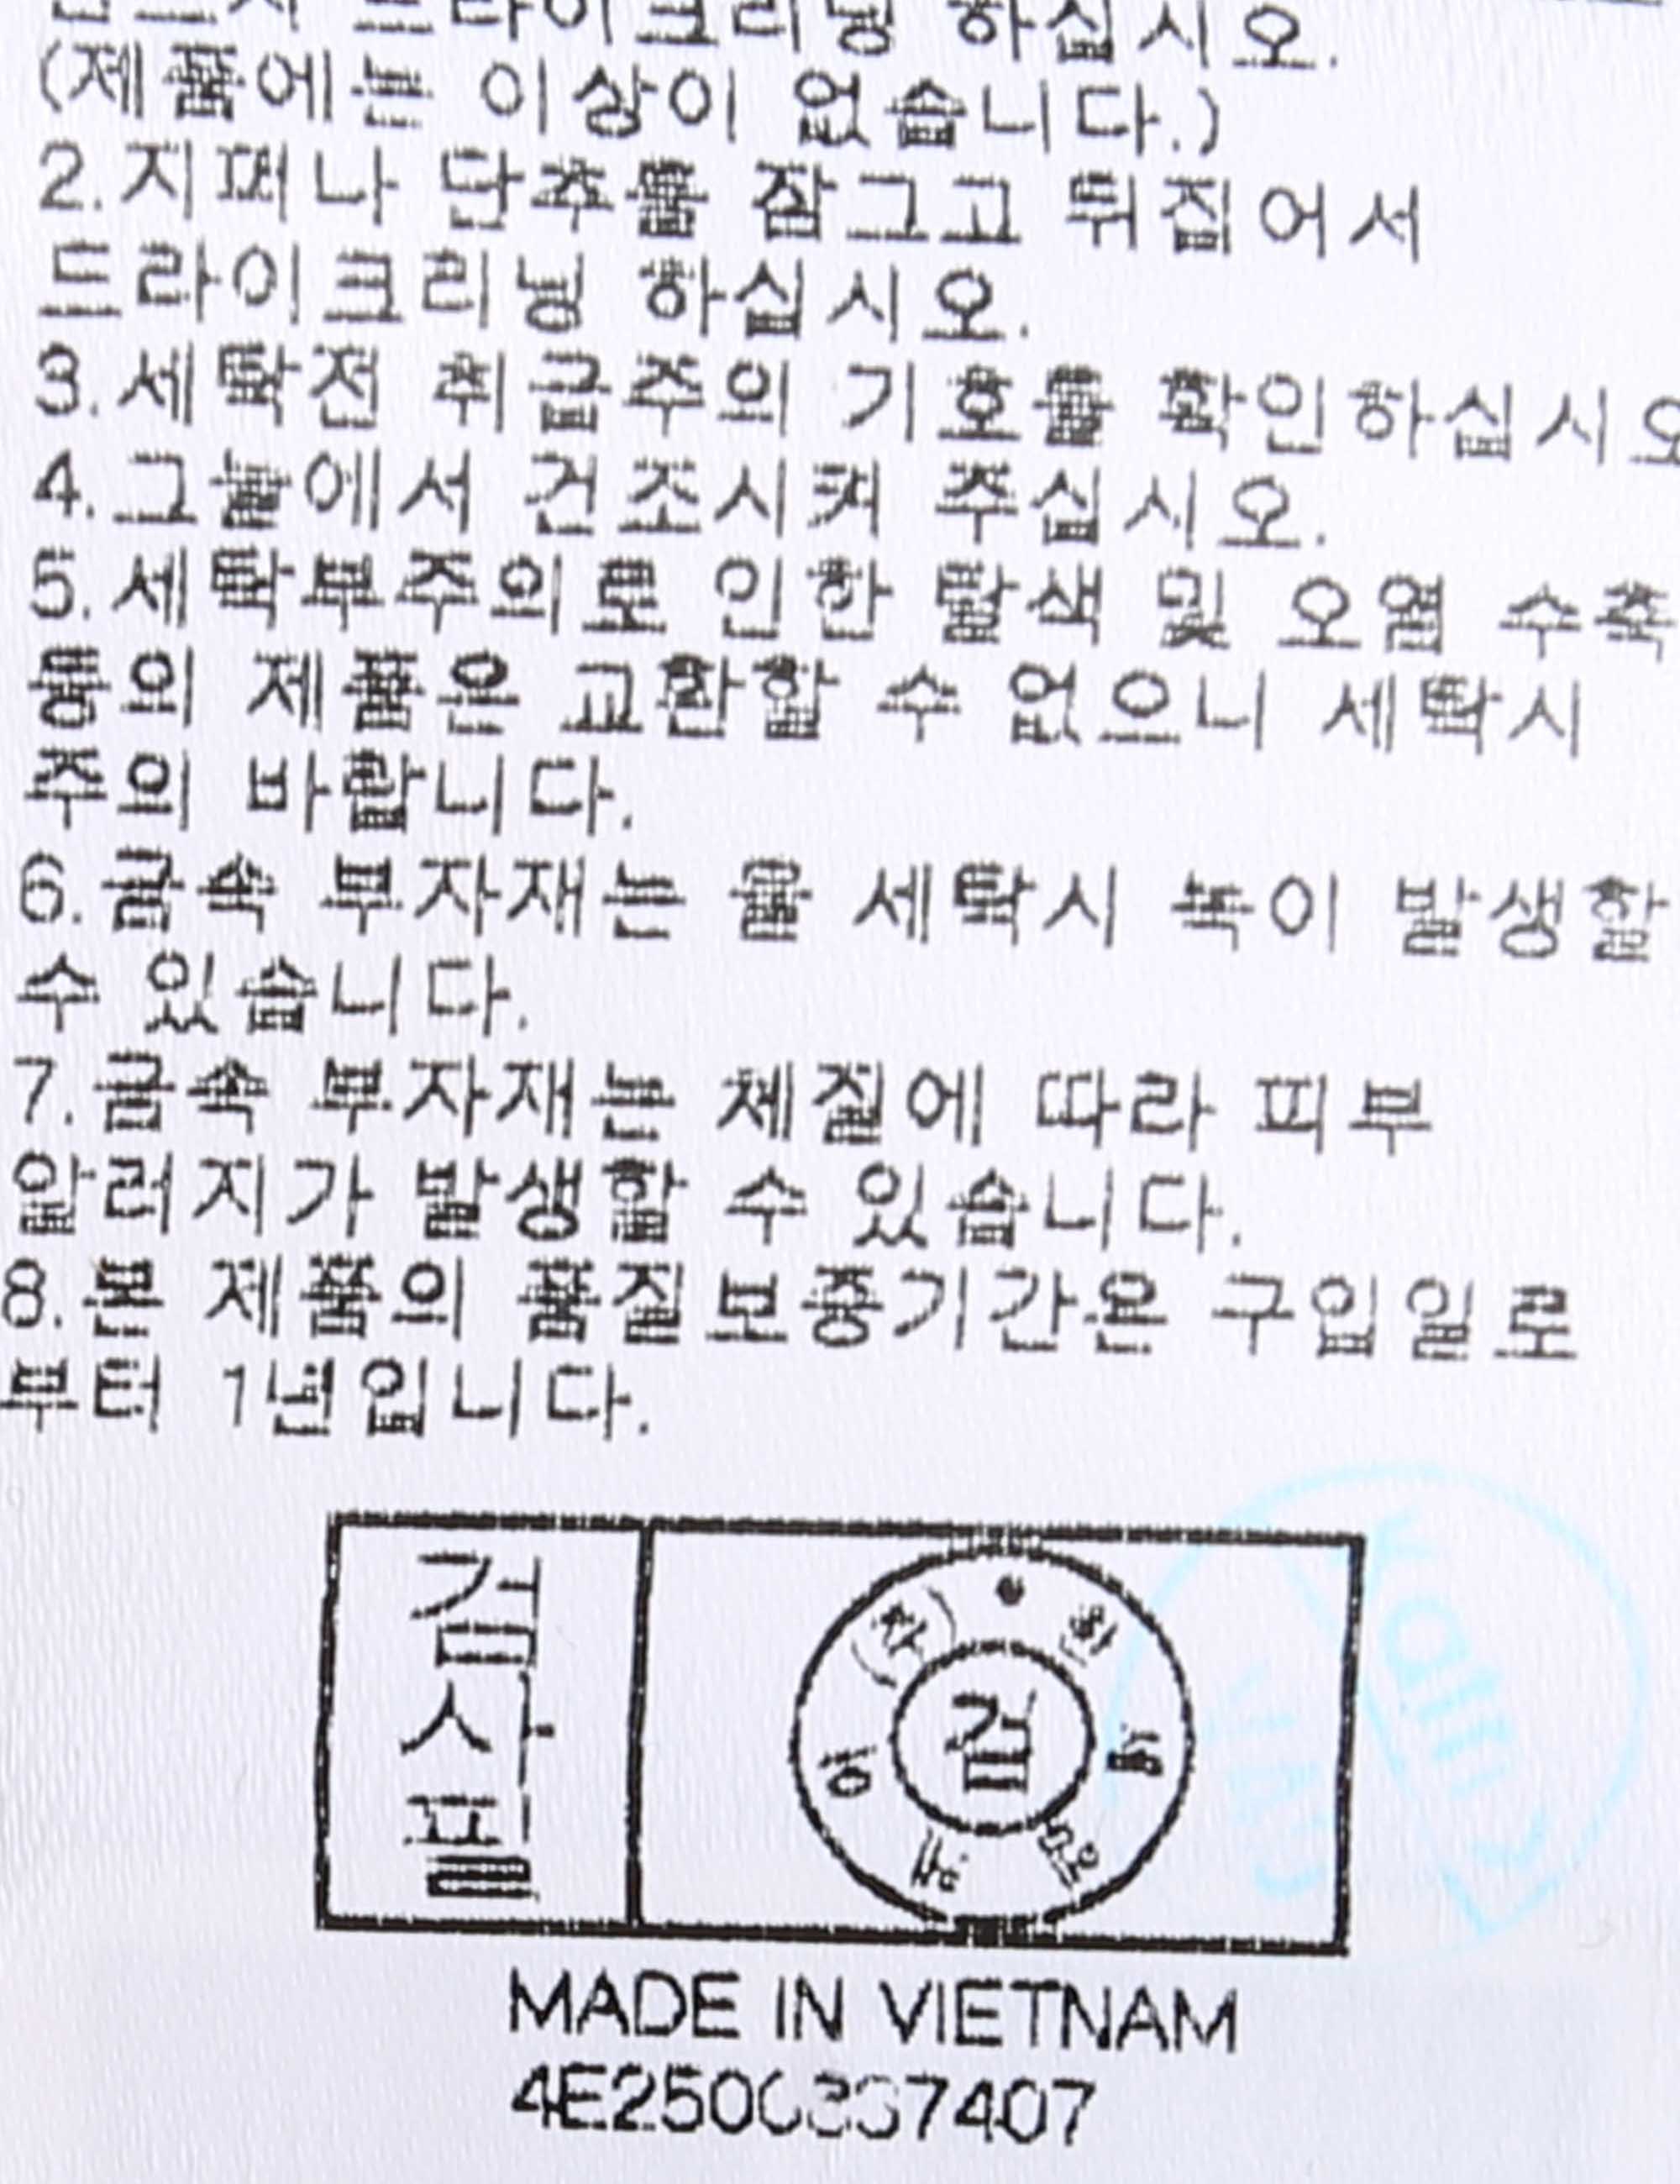 드라이크리닝 하십시오.
(제품에는 이상이 없습니다.)
2.지퍼나 단추를 잠그고 뒤집어서
드라이크리닝 하십시오.
3.세탁전 취급주의 기호를 확인하십시오
4.그늘에서 건조시켜 주십시오.
5.세탁부주의로 인한 탈색 및 오염 수축
등의 제품은 교환할 수 없으니 세탁시
주의 바랍니다.
6.금속 부자재는 물 세탁시 녹이 발생할
수 있습니다.
7.금속 부자재는 체질에 따라 피부
알러지가 발생할 수 있습니다.
8.본 제품의 품질보증기간은 구입일로
부터 1년입니다.
검사필
검
MADE IN VIETNAM